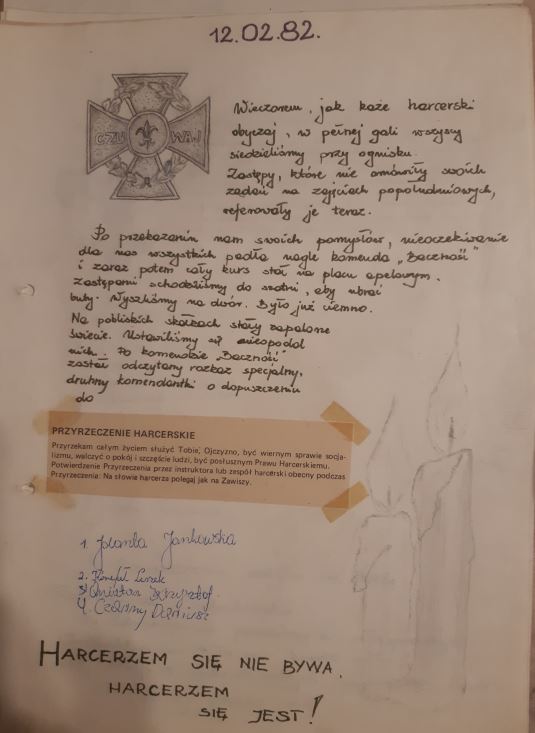 12.02.82.
CZU WAJ
Wieczorem, jak każe harcerski
obyczaj, w pełnej gali wszyscy
siedzieliśmy przy ognisku.
Zastępy, które nie omówiły swoich
zadań na zajęciach popołudniowych,
referowały je teraz.
Po przekazaniu nam swoich pomysłów, nieoczekiwanie
dla nas wszystkich padła nagle komenda „Baczność”
i zaraz potem cały kurs stał na placu apelowym.
Zastępami schodziliśmy do szatni, aby ubrać
buty. Wyszliśmy na dwór. Było już ciemno.
Na pobliskich skałkach stały zapalone
świece. Ustawiliśmy się nieopodal
nich. Po komendzie „Baczność”
został odczytany rozkaz specjalny,
druhny komendantki o dopuszczeniu
do
PRZYRZECZENIE HARCERSKIE
Przyrzekam całym życiem służyć Tobie, Ojczyzno, być wiernym sprawie socja-
lizmu, walczyć o pokój i szczęście ludzi, być posłusznym Prawu Harcerskiemu.
Potwierdzenie Przyrzeczenia przez instruktora lub zespół harcerski obecny podczas
Przyrzeczenia: Na słowie harcerza polegaj jak na Zawiszy.
1. Jolanta Jankowska
2. Leszek
3. Krzysztof
4. Czarny Dariusz
HARCERZEM SIĘ NIE BYWA,
HARCERZEM
SIĘ JEST!